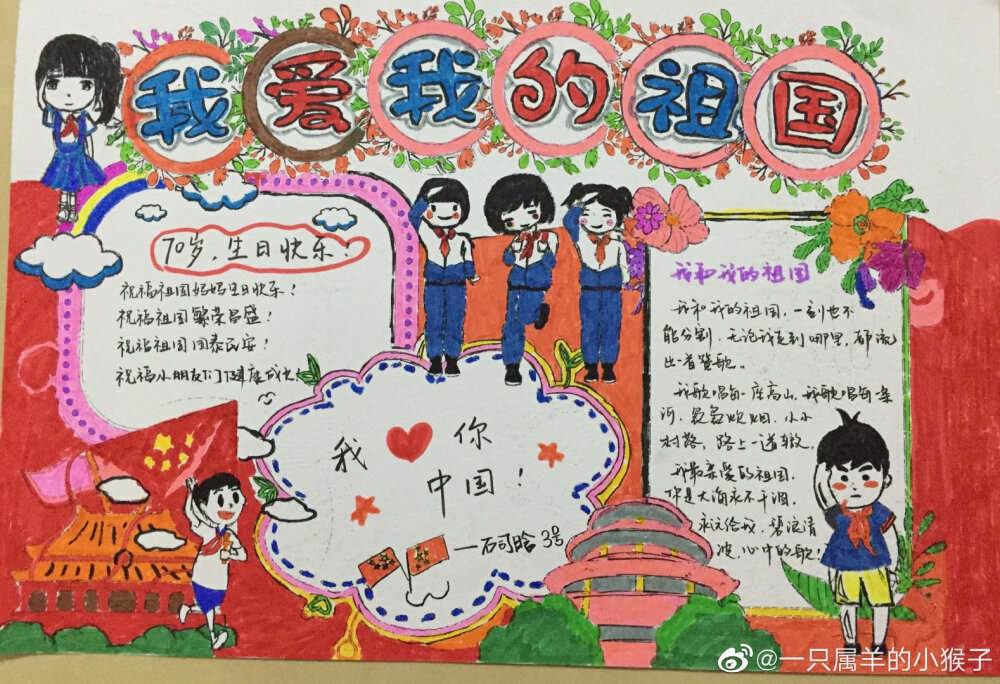 我爱我的祖国
70岁，生日快乐！
祝福祖国妈妈生日快乐！
祝福祖国繁荣昌盛！
祝福祖国国泰民安！
祝福小朋友们健康成长
我❤你
中国！
——石司晗 3号
我和我的祖国
我和我的祖国，一刻也不
能分割，无论我走到哪里，都流
出一首赞歌。
我歌唱每一座高山，我歌唱每一条
河，袅袅炊烟，小小
村落，路上一道辙。
我最亲爱的祖国，
你是大海永不干涸，
永远给我，碧浪清
波，心中的歌！
@一只属羊的小猴子